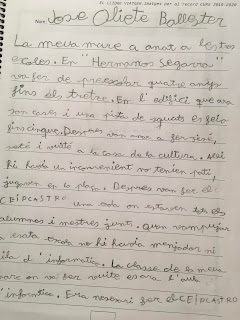 EL LLIBRE VIATGER. Imatges per al record CURS 2019-2020
Nom Jose Oliete Ballester
La meua mare a anat a les tres
escoles. En "Hermanos Segarra"
va fer de preescolar quatre anys
fins els tretze. En l'edifici que ara
son cases i una pista de squats es feia
fins cinque. Després van anar a fer sisé,
seté i vuité a la casa de la cultura. Allí
hi havia un inconvenient no tenien pati,
jugaven en la plaça. Despres van fer el
CEIPCASTRO una on estaven tots els
alumnes i mestres junts. Quan
esta no hi havia menjador ni
d'informatica. La classe de la meua
mare on va fer vuite es ara l'aula
d'informatica. Era necesari fer el CEIPCASTRO